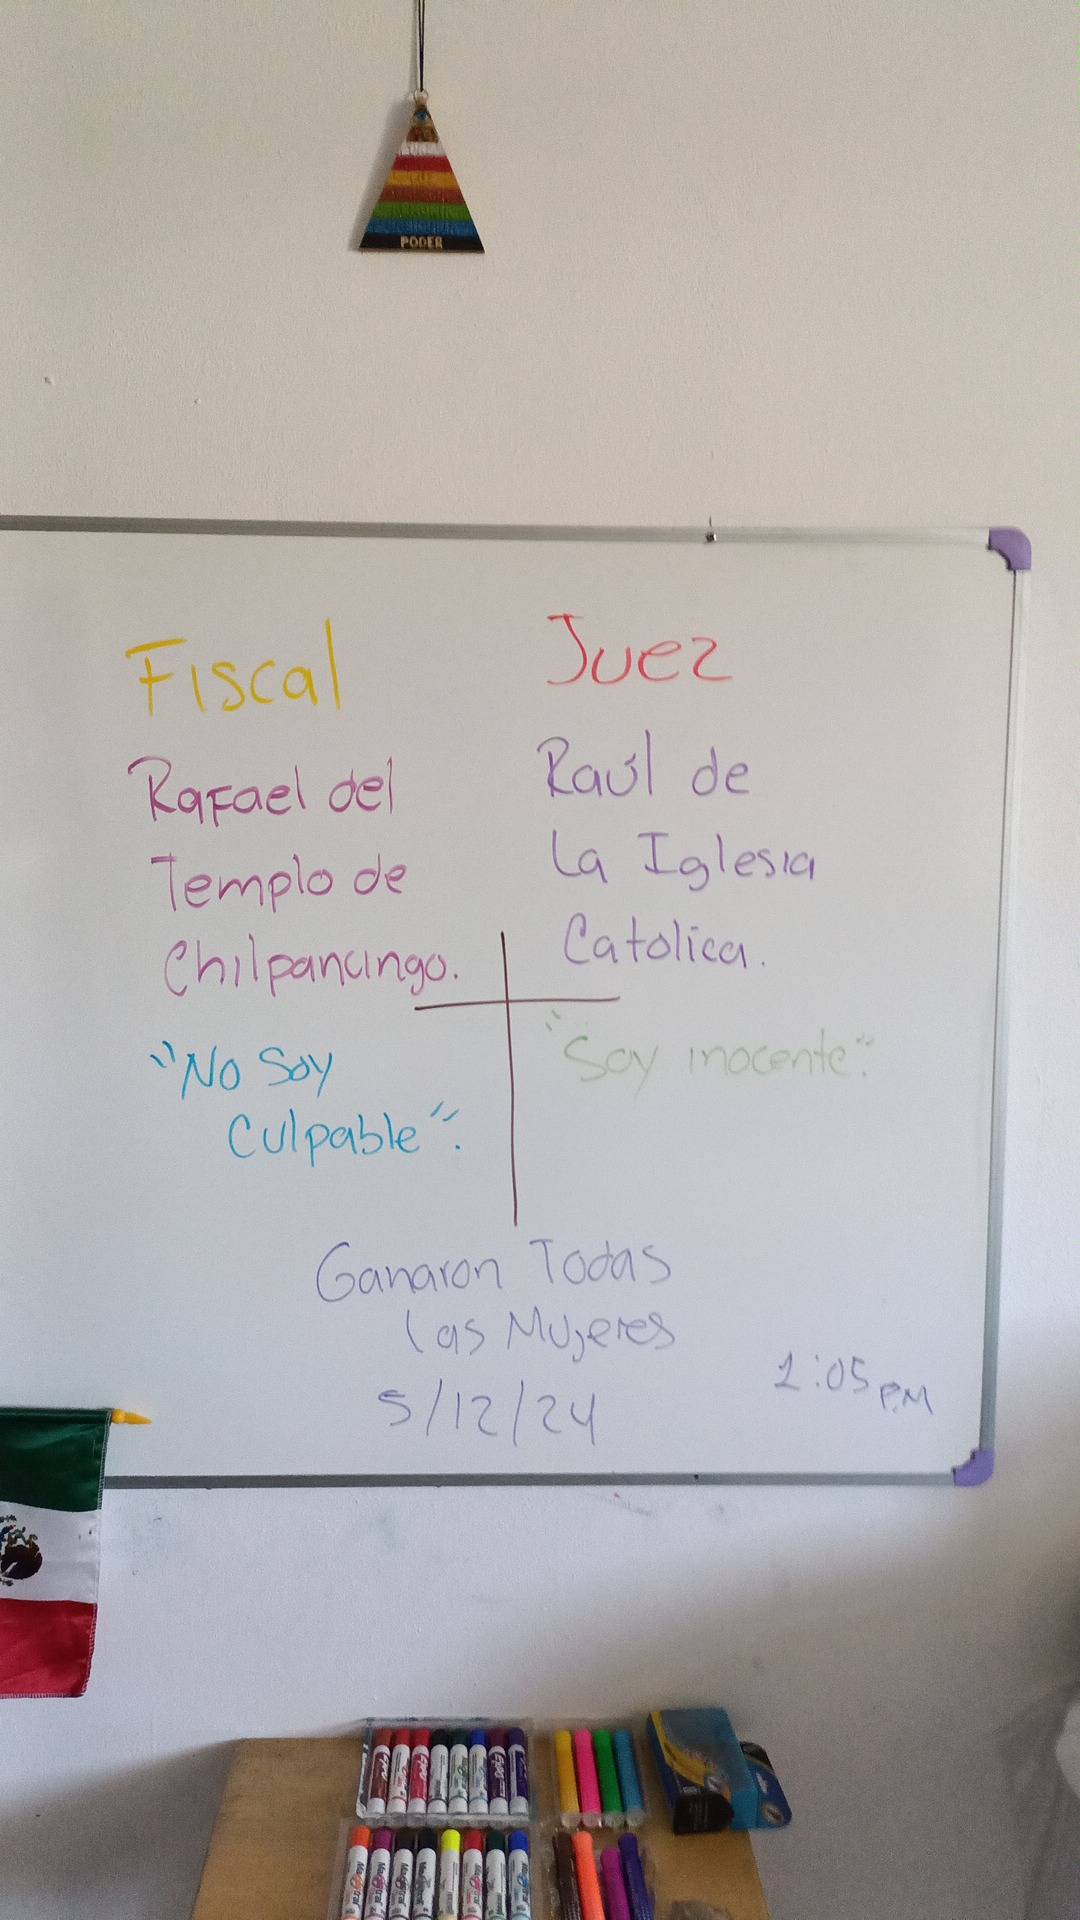 PODER
Fiscal
Rafael del
Templo de
Chilpancingo.
"No Soy
Culpable".
Juez
Raúl de
La Iglesia
Catolica.
"Soy inocente".
Ganaron Todas
Las Mujeres
5/12/24
1:05 P.M